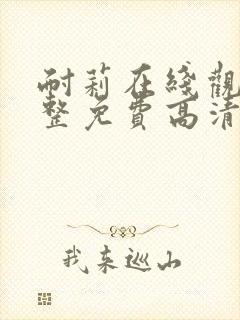 耐莉在綫觀
整免費高清
我来巡山